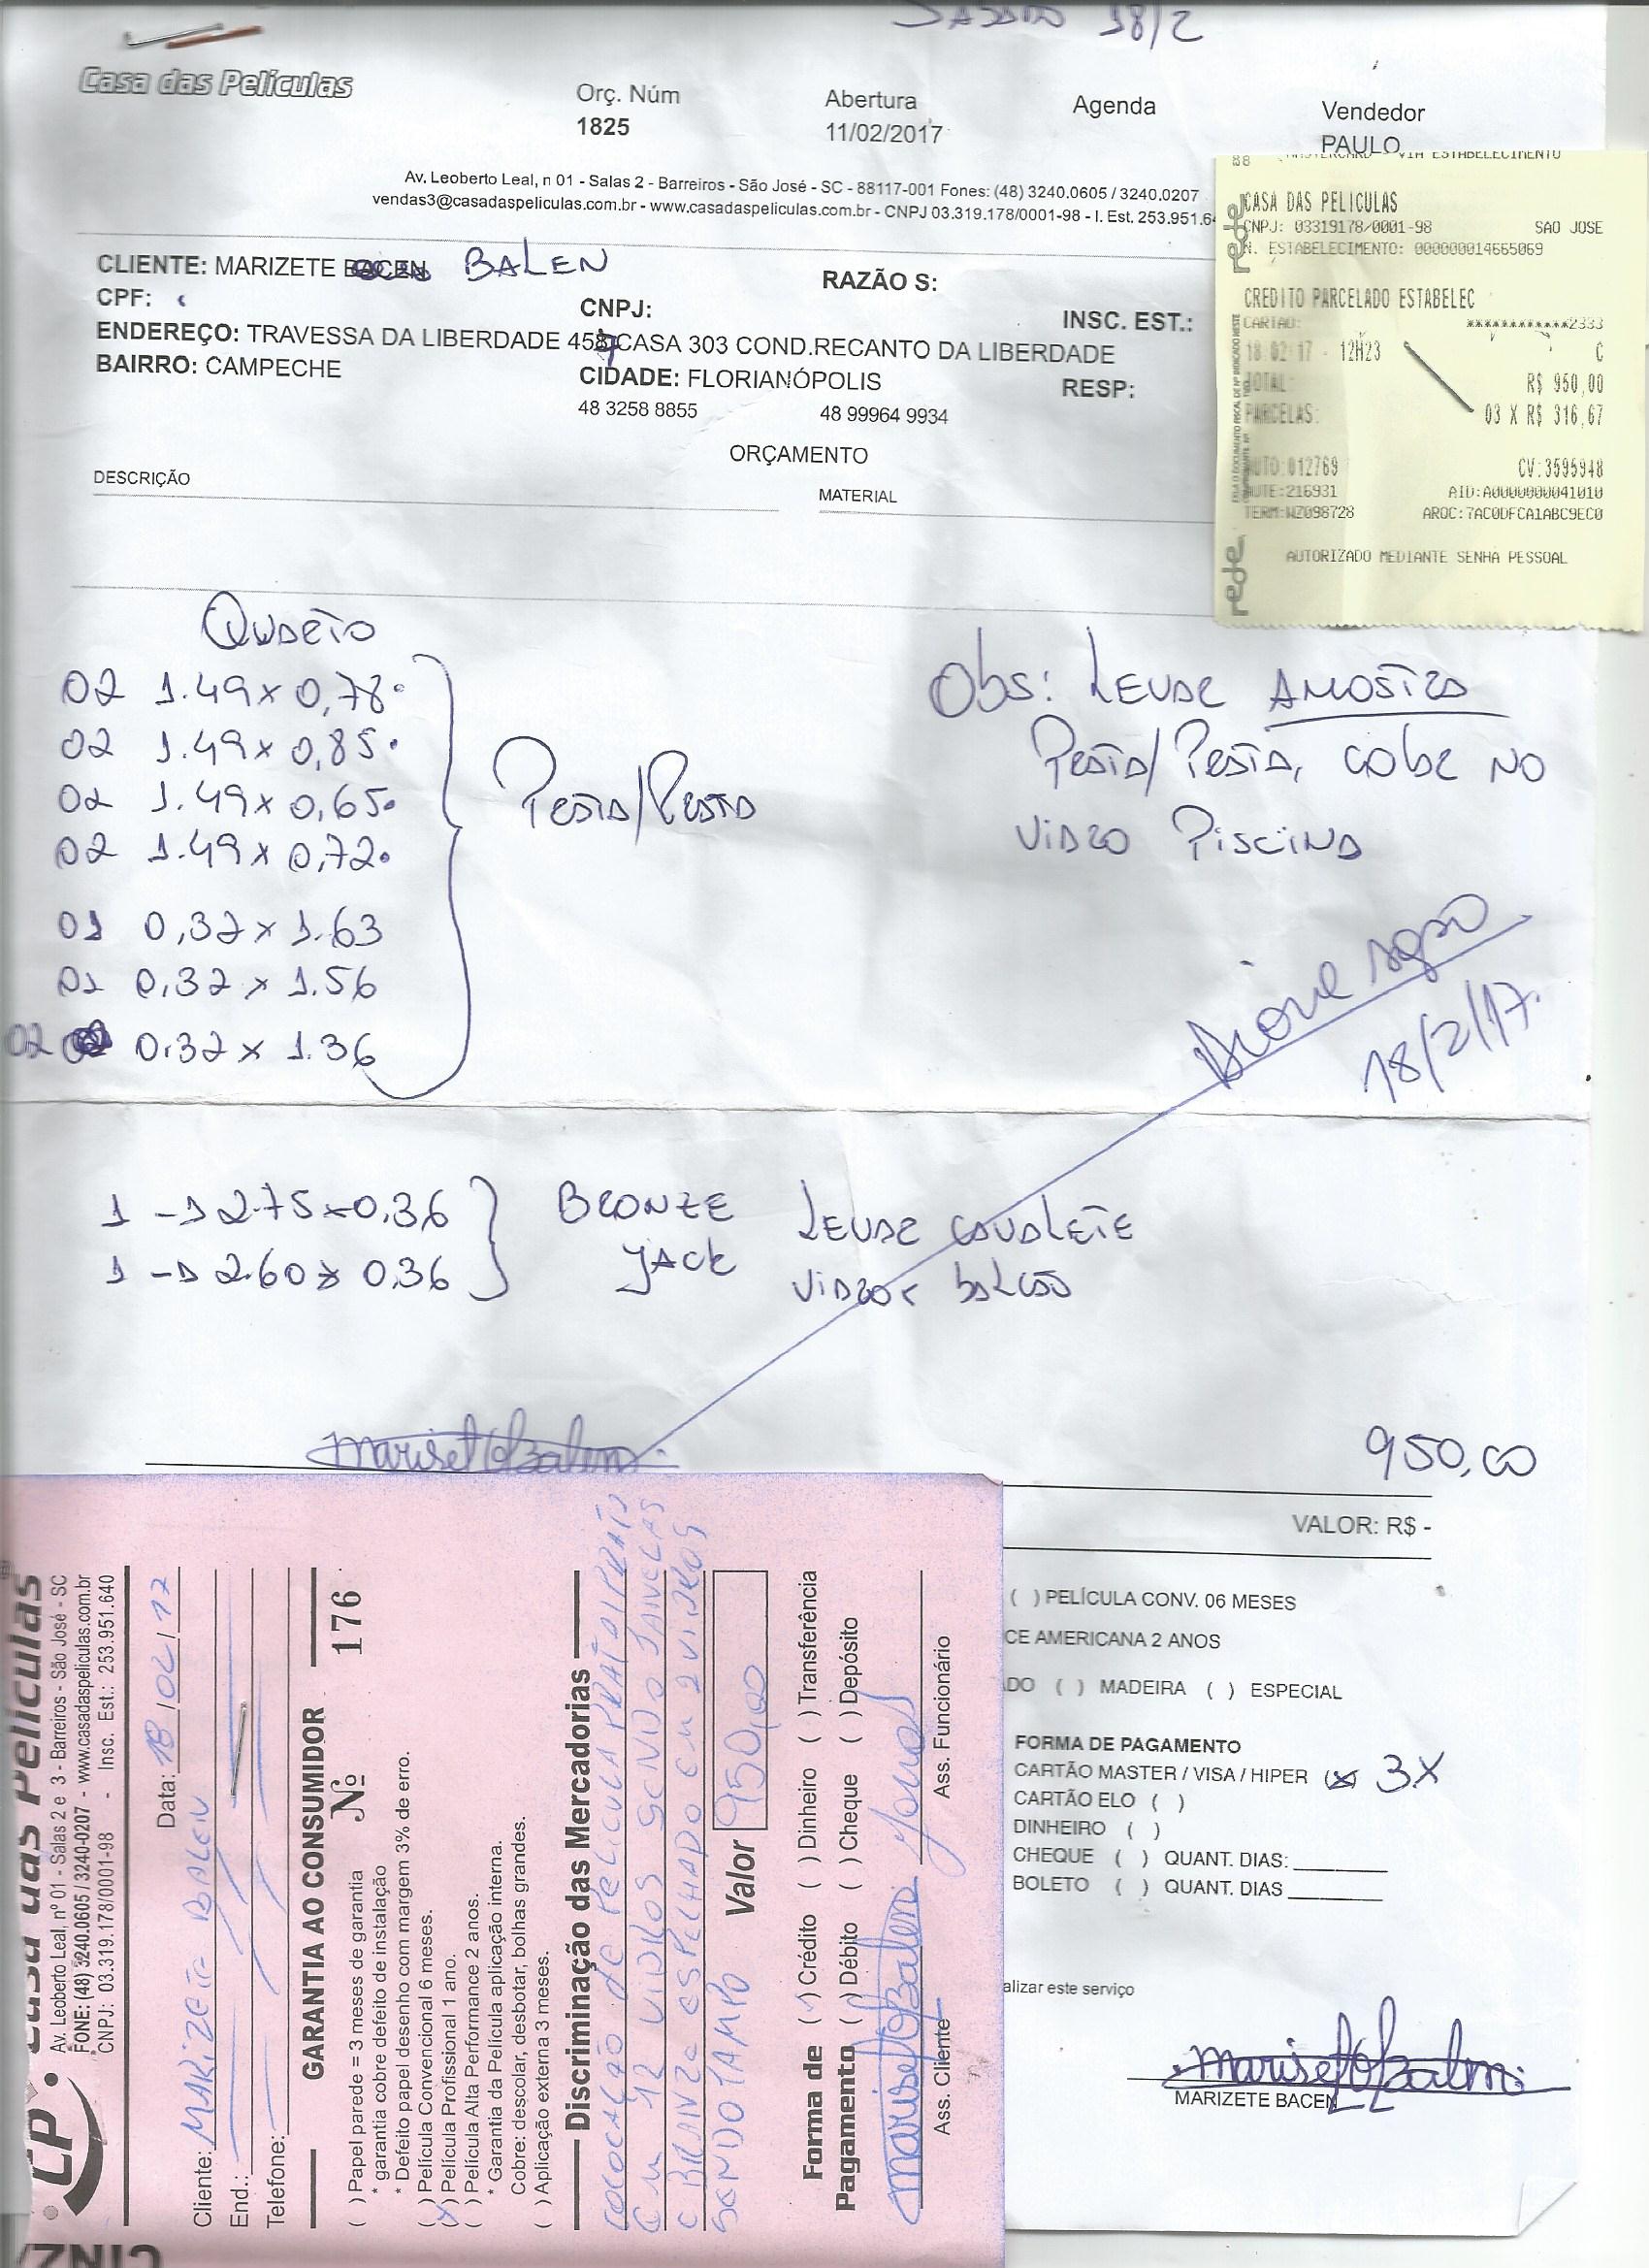 SABADO 18/2
Casa das Películas
Orç. Núm
1825
Abertura
11/02/2017
Agenda
Vendedor
PAULO
Av. Leoberto Leal, n 01 - Salas 2 - Barreiros - São José - SC - 88117-001 Fones: (48) 3240.0605 / 3240.0207
vendas3@casadaspeliculas.com.br - www.casadaspeliculas.com.br - CNPJ 03.319.178/0001-98 - I. Est. 253.951.64
CLIENTE: MARIZETE BALEN
RAZÃO S:
CPF:
CNPJ:
INSC. EST.:
ENDEREÇO: TRAVESSA DA LIBERDADE 457 CASA 303 COND.RECANTO DA LIBERDADE
BAIRRO: CAMPECHE
CIDADE: FLORIANÓPOLIS
RESP:
48 3258 8855
48 99964 9934
ORÇAMENTO
DESCRIÇÃO
MATERIAL
MASTERCARD - VIA ESTABELECIMENTO
CASA DAS PELICULAS
CNPJ: 03319178/0001-98 SAO JOSE
N. ESTABELECIMENTO: 000000014665069
CREDITO PARCELADO ESTABELEC
CARTAO: ************2333
18.02.17 - 12H23 C
TOTAL: R$ 950,00
PARCELAS: 03 X R$ 316,67
AUTO:012769 CV:3595948
AUTE:216931 AID:A0000000041010
TERM:WZ098728 ARQC:7AC0DFCA1ABC9EC0
AUTORIZADO MEDIANTE SENHA PESSOAL
rede
rede
QUARTO
02 1.49 x 0,78
02 1.49 x 0,85
02 1.49 x 0,65
02 1.49 x 0,72
01 0,32 x 1.63
01 0,32 x 1.56
02 0.32 x 1.36
PRATA/PRATA
Obs: LEVAR AMOSTRA
PRATA/PRATA, COLAR NO
VIDRO PISCINA
18/2/17.
1 -> 2.75 x 0,36
1 -> 2.60 x 0,36
BRONZE
JACK
LEVAR CAVALETE
VIDROS BALCÃO
Marisete Balen
950,00
VALOR: R$ -
( ) PELÍCULA CONV. 06 MESES
CE AMERICANA 2 ANOS
ADO ( ) MADEIRA ( ) ESPECIAL
FORMA DE PAGAMENTO
CARTÃO MASTER / VISA / HIPER (x) 3X
CARTÃO ELO ( )
DINHEIRO ( )
CHEQUE ( ) QUANT. DIAS:
BOLETO ( ) QUANT. DIAS
alizar este serviço
Marisete Balen
MARIZETE BACEN
CP Casa das Películas
Av. Leoberto Leal, nº 01 - Salas 2 e 3 - Barreiros - São José - SC
FONE: (48) 3240.0605 / 3240-0207 - www.casadaspeliculas.com.br
CNPJ: 03.319.178/0001-98 - Insc. Est.: 253.951.640
Data: 18/02/17
Cliente: MARIZETE BALEN
End.:
Telefone:
GARANTIA AO CONSUMIDOR Nº 176
( ) Papel parede = 3 meses de garantia
* garantia cobre defeito de instalação
* Defeito papel desenho com margem 3% de erro.
( ) Película Convencional 6 meses.
(x) Película Profissional 1 ano.
( ) Película Alta Performance 2 anos.
* Garantia da Película aplicação interna.
Cobre: descolar, desbotar, bolhas grandes.
( ) Aplicação externa 3 meses.
Discriminação das Mercadorias
COLOCAÇÃO de PELICULA PRATA/PRATA
Em 12 VIDROS SENDO JANELAS
E BRONZE ESPELHADO EM 2 VIDROS
SENDO TAMPO
Valor 950,00
Forma de Pagamento
( ) Crédito ( ) Dinheiro ( ) Transferência
( ) Débito ( ) Cheque ( ) Depósito
Marisete Balen
Ass. Cliente
Ass. Funcionário